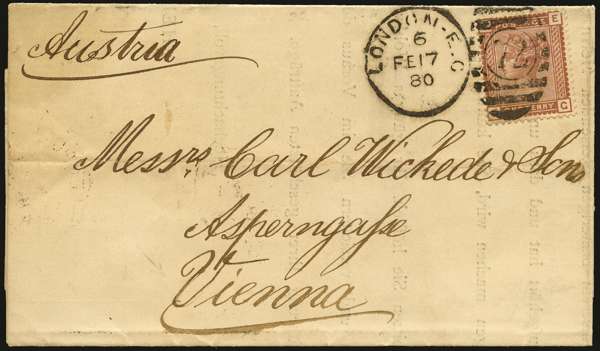 Austria
LONDON-E.C
6
FE17
80
72
E
PENNY G
Messrs Carl Wickede & Sons
Asperngaſse
Vienna